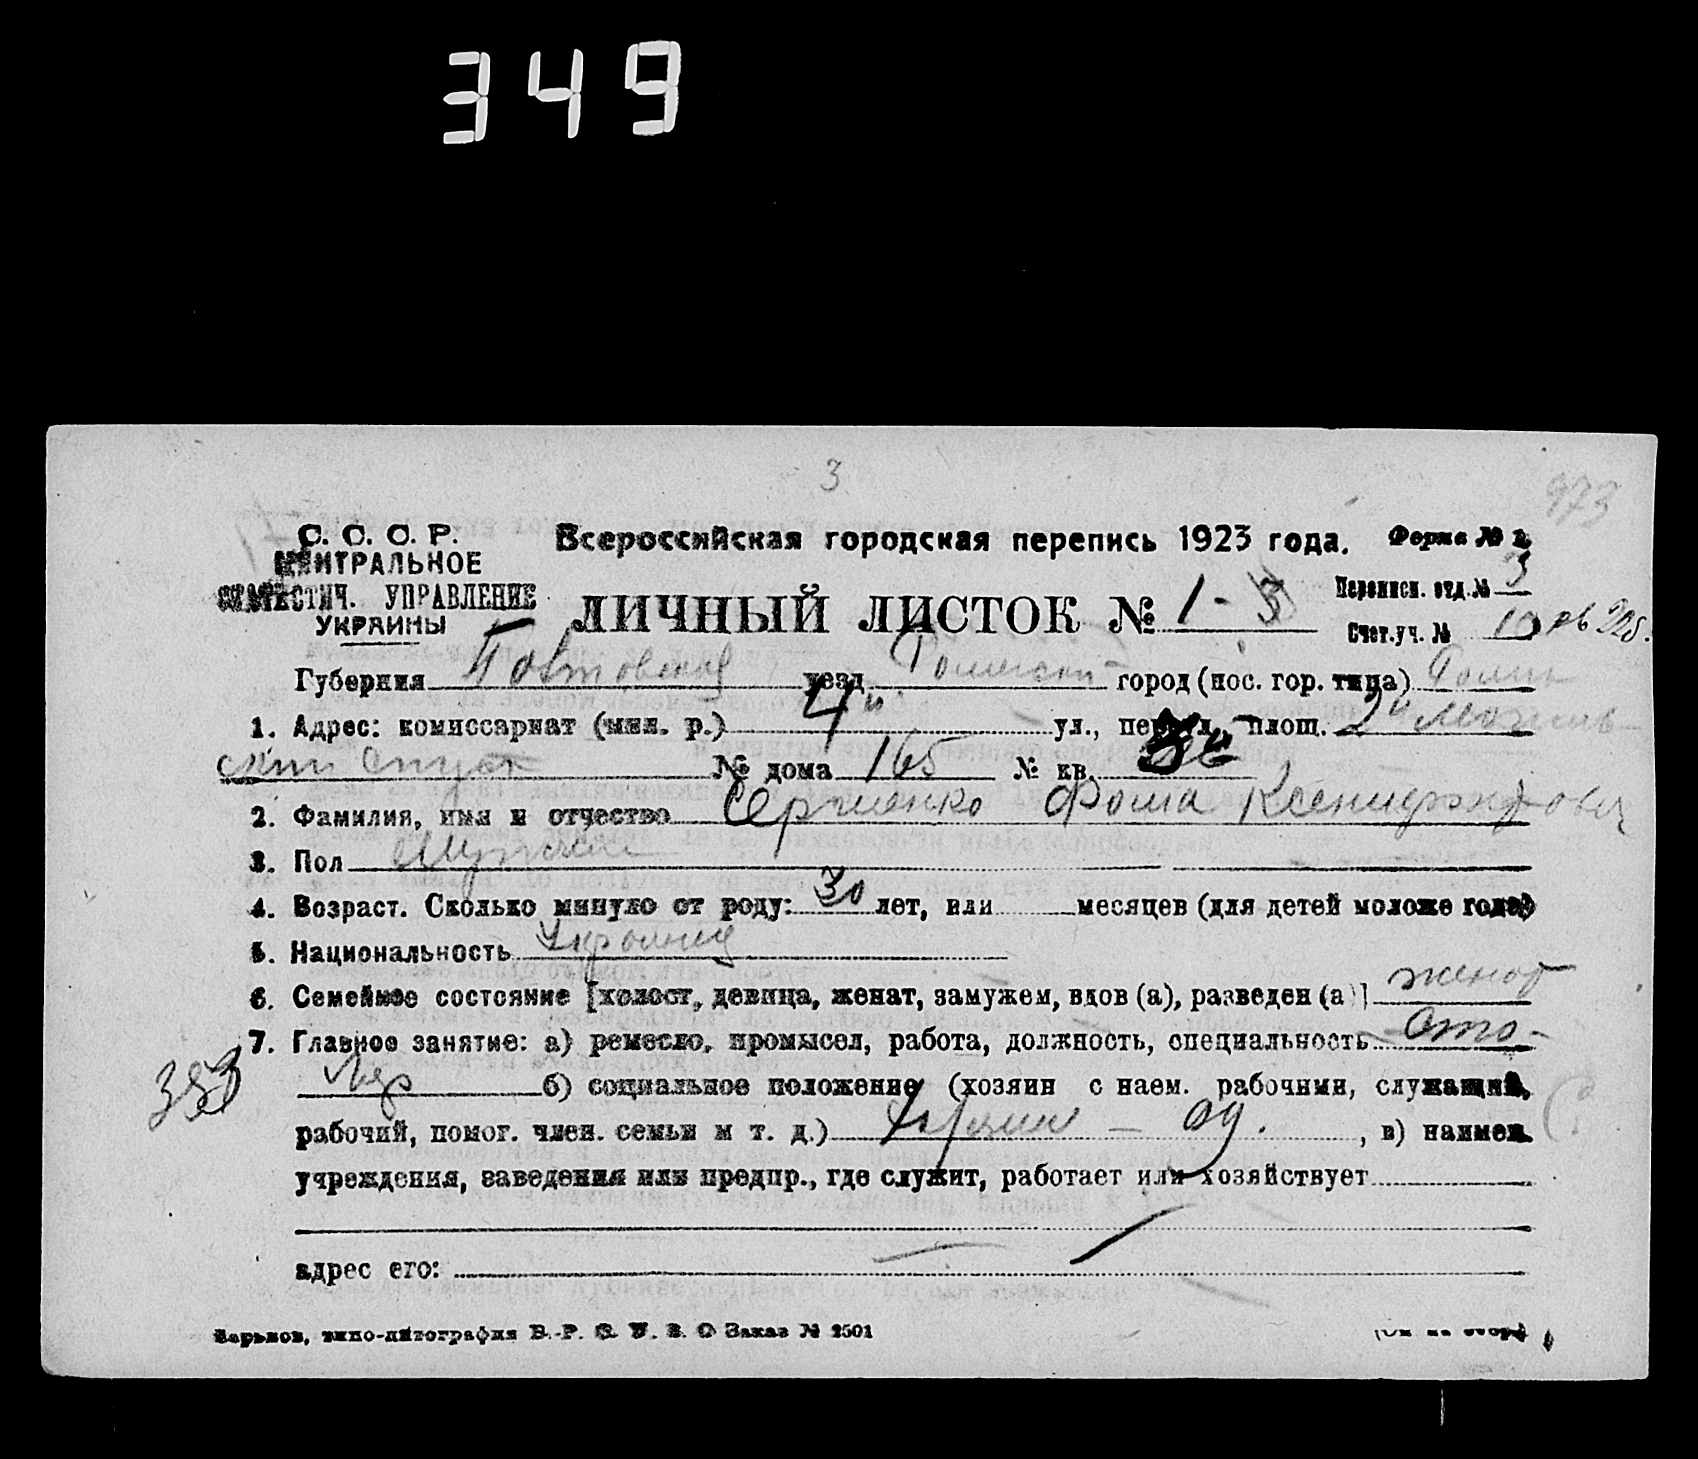 349
3
973
С. С. С. Р.
ЦЕНТРАЛЬНОЕ
СТАТИСТИЧ. УПРАВЛЕНИЕ
УКРАИНЫ
Всероссийская городская перепись 1923 года.
Форма № 2.
ЛИЧНЫЙ ЛИСТОК № 1-3
Переписн. отд. № 3
Счет. уч. № 10
Губерния Полтовская уезд Роменский город (пос. гор. типа) Ромны
1. Адрес: комиссариат (мил. р.) 4й ул., переул., площ. 2й
ский Спуск № дома 165 № кв.
2. Фамилия, имя и отчество Сергиенко Фома
3. Пол Мужской
4. Возраст. Сколько минуло от роду: 30 лет, или месяцев (для детей моложе года)
5. Национальность Украинец
6. Семейное состояние [холост, девица, женат, замужем, вдов (а), разведен (а)] женат
7. Главное занятие: а) ремесло, промысел, работа, должность, специальность Сто-
353 ляр б) социальное положение (хозяин с наем. рабочими, служащий,
рабочий, помог. член. семьи и т. д.) Хозяин - од. , в) наимен.
учреждения, заведения или предпр., где служит, работает или хозяйствует
адрес его:
Харьков, типо-литография В.-Р. С. У. В. О Заказ № 2501